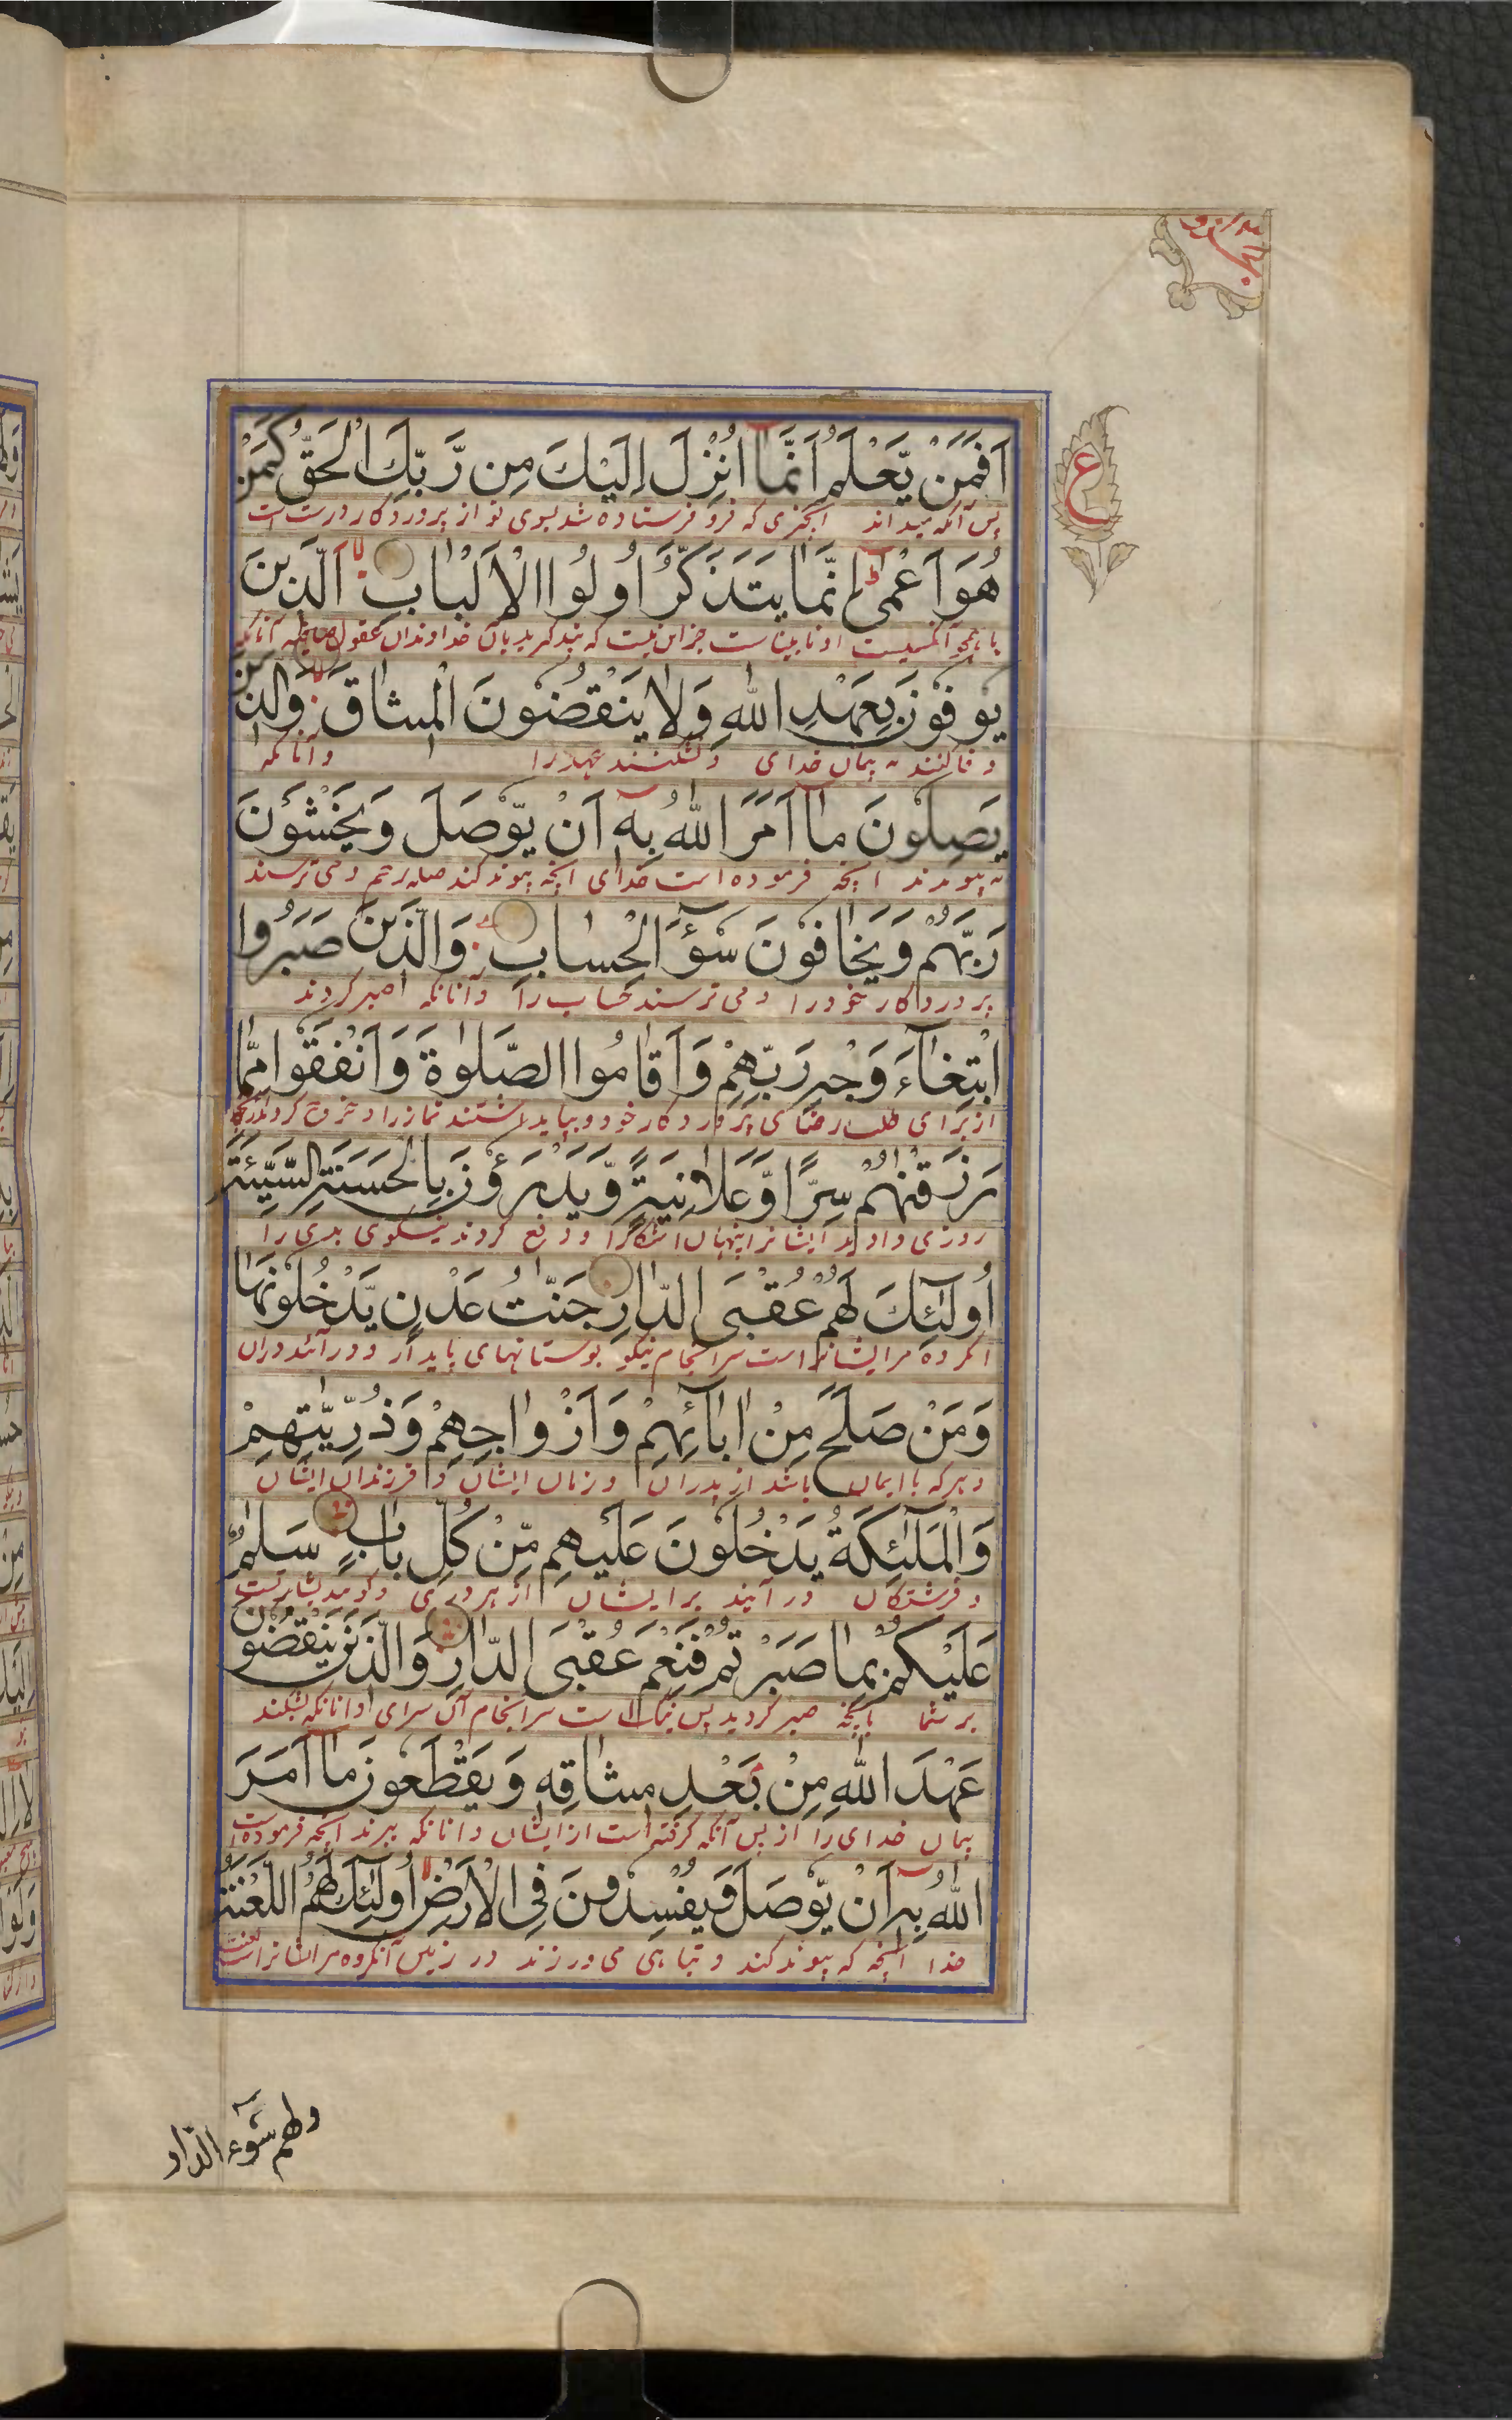 اَفَمَنْ يَّعْلَمُ اَنَّمَا اُنْزِلَ اِلَيْكَ مِن رَّبِّكَ الْحَقُّ كَمَنْ
پس آنکه میداند آنچیزی که فرو فرستاده شد بسوی تو از پروردگار درست است
هُوَ اَعْمٰى اِنَّمَا يَتَذَكَّرُ اُولُوا الْاَلْبَابِ اَلَّذِيْنَ
او نابیناست جز این نیست که پند گیرند بآن خداوندان عقول آنانکه
يُوفُونَ بِعَهْدِ اللّٰهِ وَلَا يَنْقُضُونَ الْمِيثَاقَ وَالَّذِيْنَ
وفا کنند به پیمان خدای و نشکنند عهد را و آنانکه
يَصِلُونَ مَا اَمَرَ اللّٰهُ بِهٖ اَنْ يُّوْصَلَ وَيَخْشَوْنَ
به پیوندند آنچه فرموده است خدای آنچه پیوند کند صله رحم و می ترسند
رَبَّهُمْ وَيَخَافُونَ سُوْٓءَ الْحِسَابِ وَالَّذِيْنَ صَبَرُوا
پروردگار خود را و می ترسند حساب را و آنانکه صبر کردند
ابْتِغَآءَ وَجْهِ رَبِّهِمْ وَاَقَامُوا الصَّلٰوةَ وَاَنْفَقُوا مِمَّا
از برای طلب رضای پروردگار خود و بپای داشتند نماز را و خرج کردند
رَزَقْنٰهُمْ سِرًّا وَّعَلَانِيَةً وَّيَدْرَؤُنَ بِالْحَسَنَةِ السَّيِّئَةَ
روزی دادیم ایشانرا پنهان آشکارا و دفع کردند به نیکوی بدی را
اُولٰٓئِكَ لَهُمْ عُقْبَى الدَّارِ جَنّٰتُ عَدْنٍ يَّدْخُلُونَهَا
آنگروه مر ایشانراست سرانجام نیکو بوستانهای پایدار و در آیند دران
وَمَنْ صَلَحَ مِنْ اٰبَآئِهِمْ وَاَزْوَاجِهِمْ وَذُرِّيّٰتِهِمْ
و هر که با ایمان باشد از پدران و زنان ایشان و فرزندان ایشان
وَالْمَلٰٓئِكَةُ يَدْخُلُونَ عَلَيْهِمْ مِّنْ كُلِّ بَابٍ سَلٰمٌ
و فرشتگان در آیند بر ایشان از هر دری و گویند
عَلَيْكُمْ بِمَا صَبَرْتُمْ فَنِعْمَ عُقْبَى الدَّارِ وَالَّذِيْنَ يَنْقُضُونَ
بر شما بآنچه صبر کردید پس نیک است سرانجام آن سرای و آنانکه بشکنند
عَهْدَ اللّٰهِ مِنْ بَعْدِ مِيثَاقِهٖ وَيَقْطَعُونَ مَا اَمَرَ
پیمان خدای را از پس آنکه گرفته است از ایشان و آنانکه ببرند آنچه فرموده است
اللّٰهُ بِهٖ اَنْ يُّوْصَلَ وَيُفْسِدُونَ فِى الْاَرْضِ اُولٰٓئِكَ لَهُمُ اللَّعْنَةُ
خدا آنچه که پیوند کند و تباهی می ورزند در زمین آنگروه مر ایشانراست لعنت
ولهم سوٓء الدار
ع